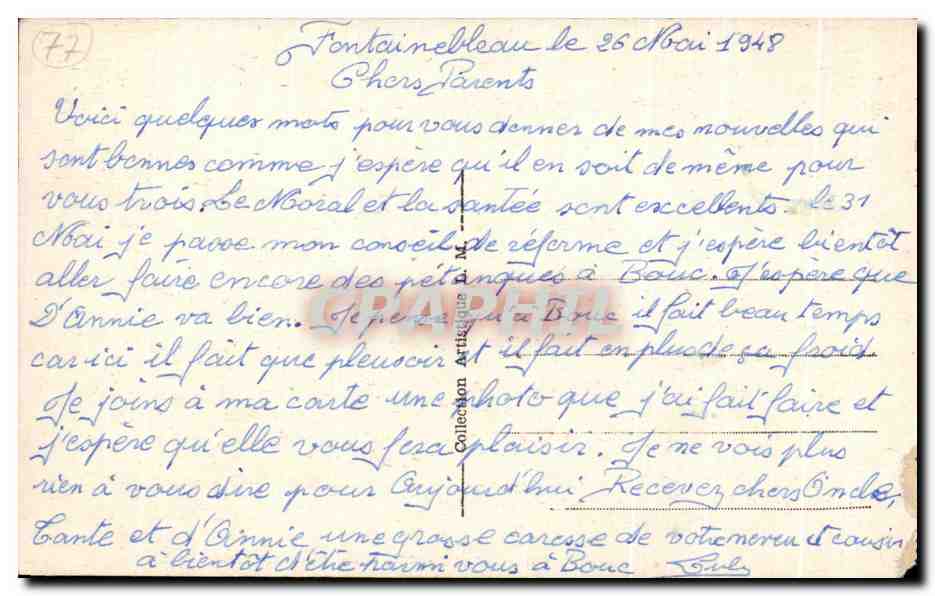 77
Fontainebleau le 26 Mai 1948
Chers Parents
Voici quelques mots pour vous donner de mes nouvelles qui
sont bonnes comme j'espère qu'il en soit de même pour
vous trois. Le Moral et la santée sont excellents. le 31
Mai je passe mon conseil de réforme et j'espère bientôt
aller faire encore des pétanques à Bouc. J'espère que
D'Annie va bien. Je pense qu'à Bouc il fait beau temps
car ici il fait que pleuvoir et il fait en plus de ça froid
Je joins à ma carte une photo que j'ai fait faire et
j'espère qu'elle vous fera plaisir. Je ne vois plus
rien à vous dire pour Aujourd'hui Recevez chers Oncle,
Tante et d'Annie une grosse caresse de votre neveu et cousin
à bientôt d'être parmi vous à Bouc
Collection Artistique L. M.
CRAPHIL